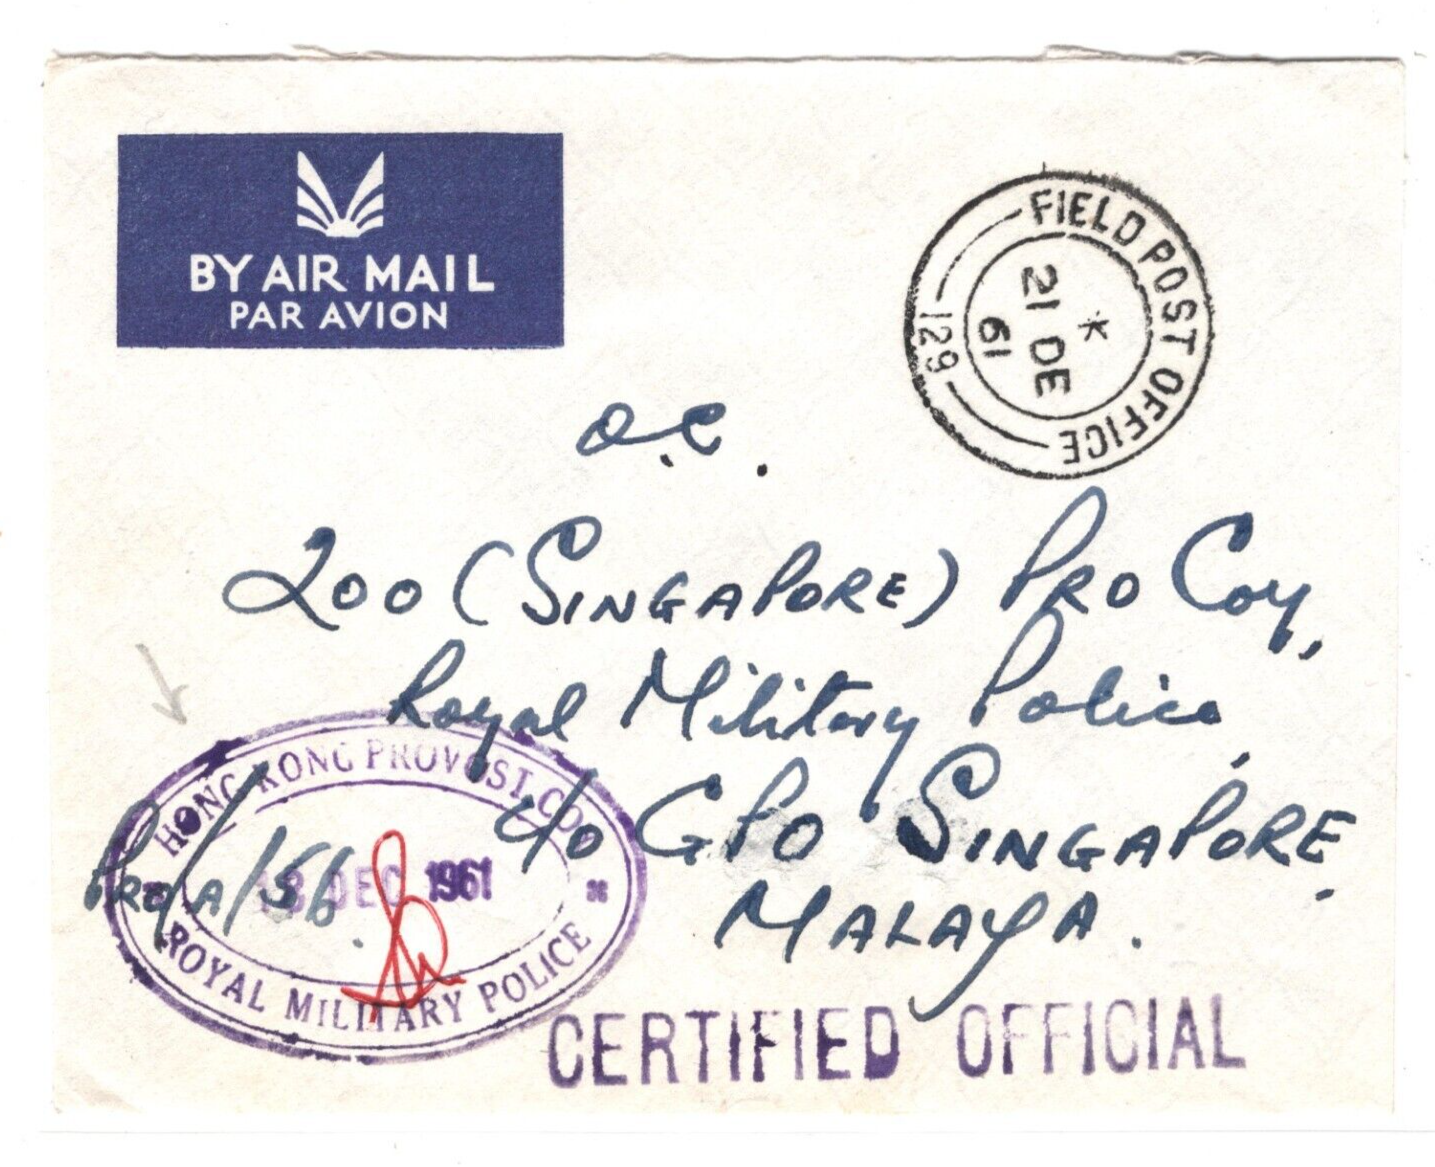 BY AIR MAIL
PAR AVION
FIELD POST OFFICE
129
*
21 DE
61
O.C.
200 (SINGAPORE) PRO Coy,
Royal Military Police,
c/o GPO SINGAPORE,
MALAYA.
HONG KONG PROVOST COY
DEC 1961
ROYAL MILITARY POLICE
CERTIFIED OFFICIAL